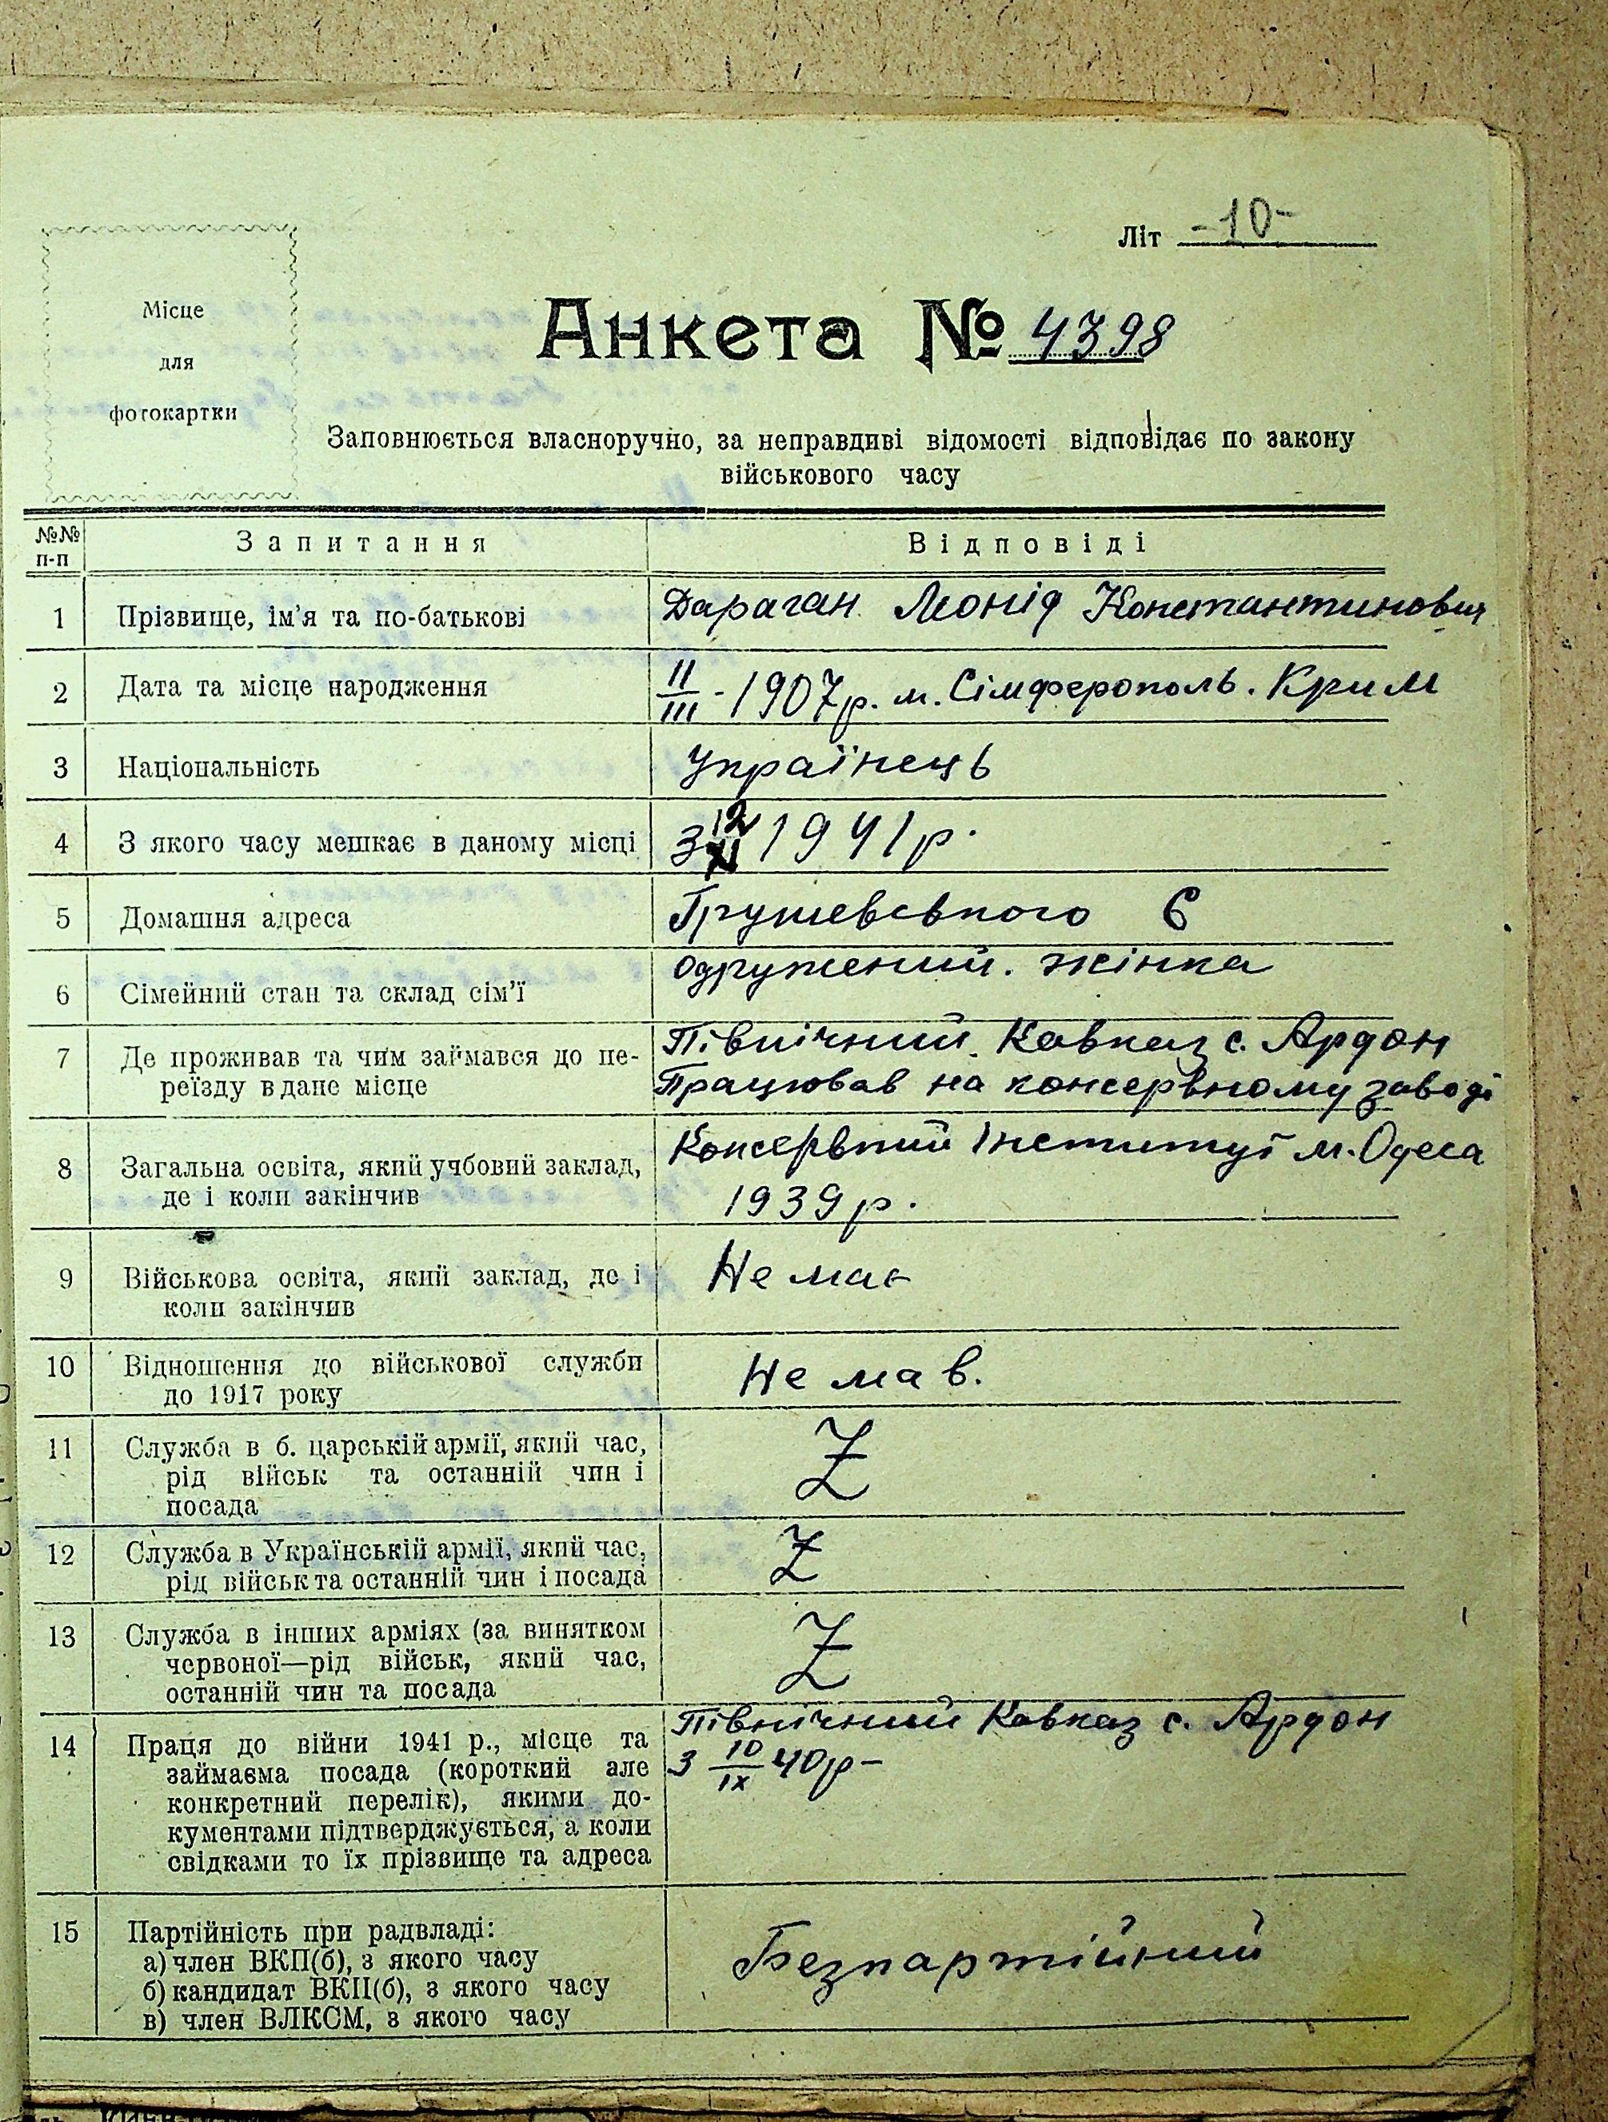 Літ -10-
Місце
для
фотокартки
Анкета № 4398
Заповнюється власноручно, за неправдиві відомості відповідає по закону
військового часу
№№
п-п
Запитання
Відповіді
1 Прізвище, ім'я та по-батькові Дараган Леонід Константинович
2 Дата та місце народження II/III - 1907р. м. Сімферополь. Крим
3 Національність Українець
4 З якого часу мешкає в даному місці З 12/XI 1941р.
5 Домашня адреса Грушевського 6
6 Сімейний стан та склад сім'ї одружений. жінка
7 Де проживав та чим займався до пе- Північний Кавказ с. Ардон
реїзду в дане місце Працював на консервному заводі
8 Загальна освіта, який учбовий заклад, Консервний Інститут м. Одеса
де і коли закінчив 1939р.
9 Військова освіта, який заклад, де і Не має
коли закінчив
10 Відношення до військової служби Не мав.
до 1917 року
11 Служба в б. царській армії, який час, Z
рід військ та останній чин і
посада
12 Служба в Українській армії, який час, Z
рід військ та останній чин і посада
13 Служба в інших арміях (за винятком Z
червоної—рід військ, який час,
останній чин та посада
14 Праця до війни 1941 р., місце та Північний Кавказ с. Ардон
займаєма посада (короткий але з 10/IX 40р-
конкретний перелік), якими до-
кументами підтверджується, а коли
свідками то їх прізвище та адреса
15 Партійність при радвладі: Безпартійний
а) член ВКП(б), з якого часу
б) кандидат ВКП(б), з якого часу
в) член ВЛКСМ, з якого часу